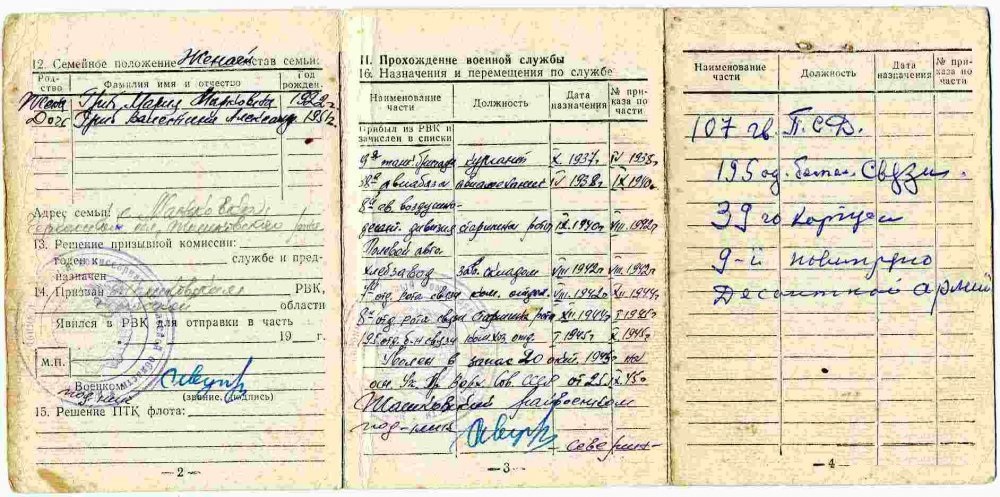 12. Семейное положение Женат Состав семьи:
Родство Фамилия имя и отчество Год рожден.
Жена Гриб Мария Марковна 1922 г.
Дочь Гриб Валентина Александр. 1951г.
Адрес семьи: с.
13. Решение призывной комиссии:
годен к службе и пред-
назначен
14. Призван РВК,
области
Явился в РВК для отправки в часть
19 г.
М.П.
Военком
под-ник (звание, подпись)
15. Решение ПТК флота:
— 2 —
II. Прохождение военной службы
16. Назначения и перемещения по службе
Наименование части Должность Дата назначения № приказа по части
Прибыл из РВК и
зачислен в списки
9я танк. бригада курсант X 1937г IV 1938г
авиабаза IV 1938г IX 1940г
8я ав. воздушно-
десант. дивизия старшина роты IX.1940г VIII 1942г
Полевой авто.
хлебзавод зав. складом VIII 1942г VIII 1942г
7 отд. рота связи ком. отдел. VIII.1942г XII 1944г
8я отд рота связи старшина роты XII 1944г I 1945г
195 отд. б-н связи отд. I 1945г X 1945г
Уволен в запас 20 окт. 1945г на
осн. Ук. Пр. Верх. Сов. СССР от 25.IX.45г
райвоенком
под-ник
Северин
— 3 —
Наименование части Должность Дата назначения № приказа по части
107 гв. П.С.Д.
195 од. батал. Связи.
39го Корпуса
9-й
Десантной армии
— 4 —